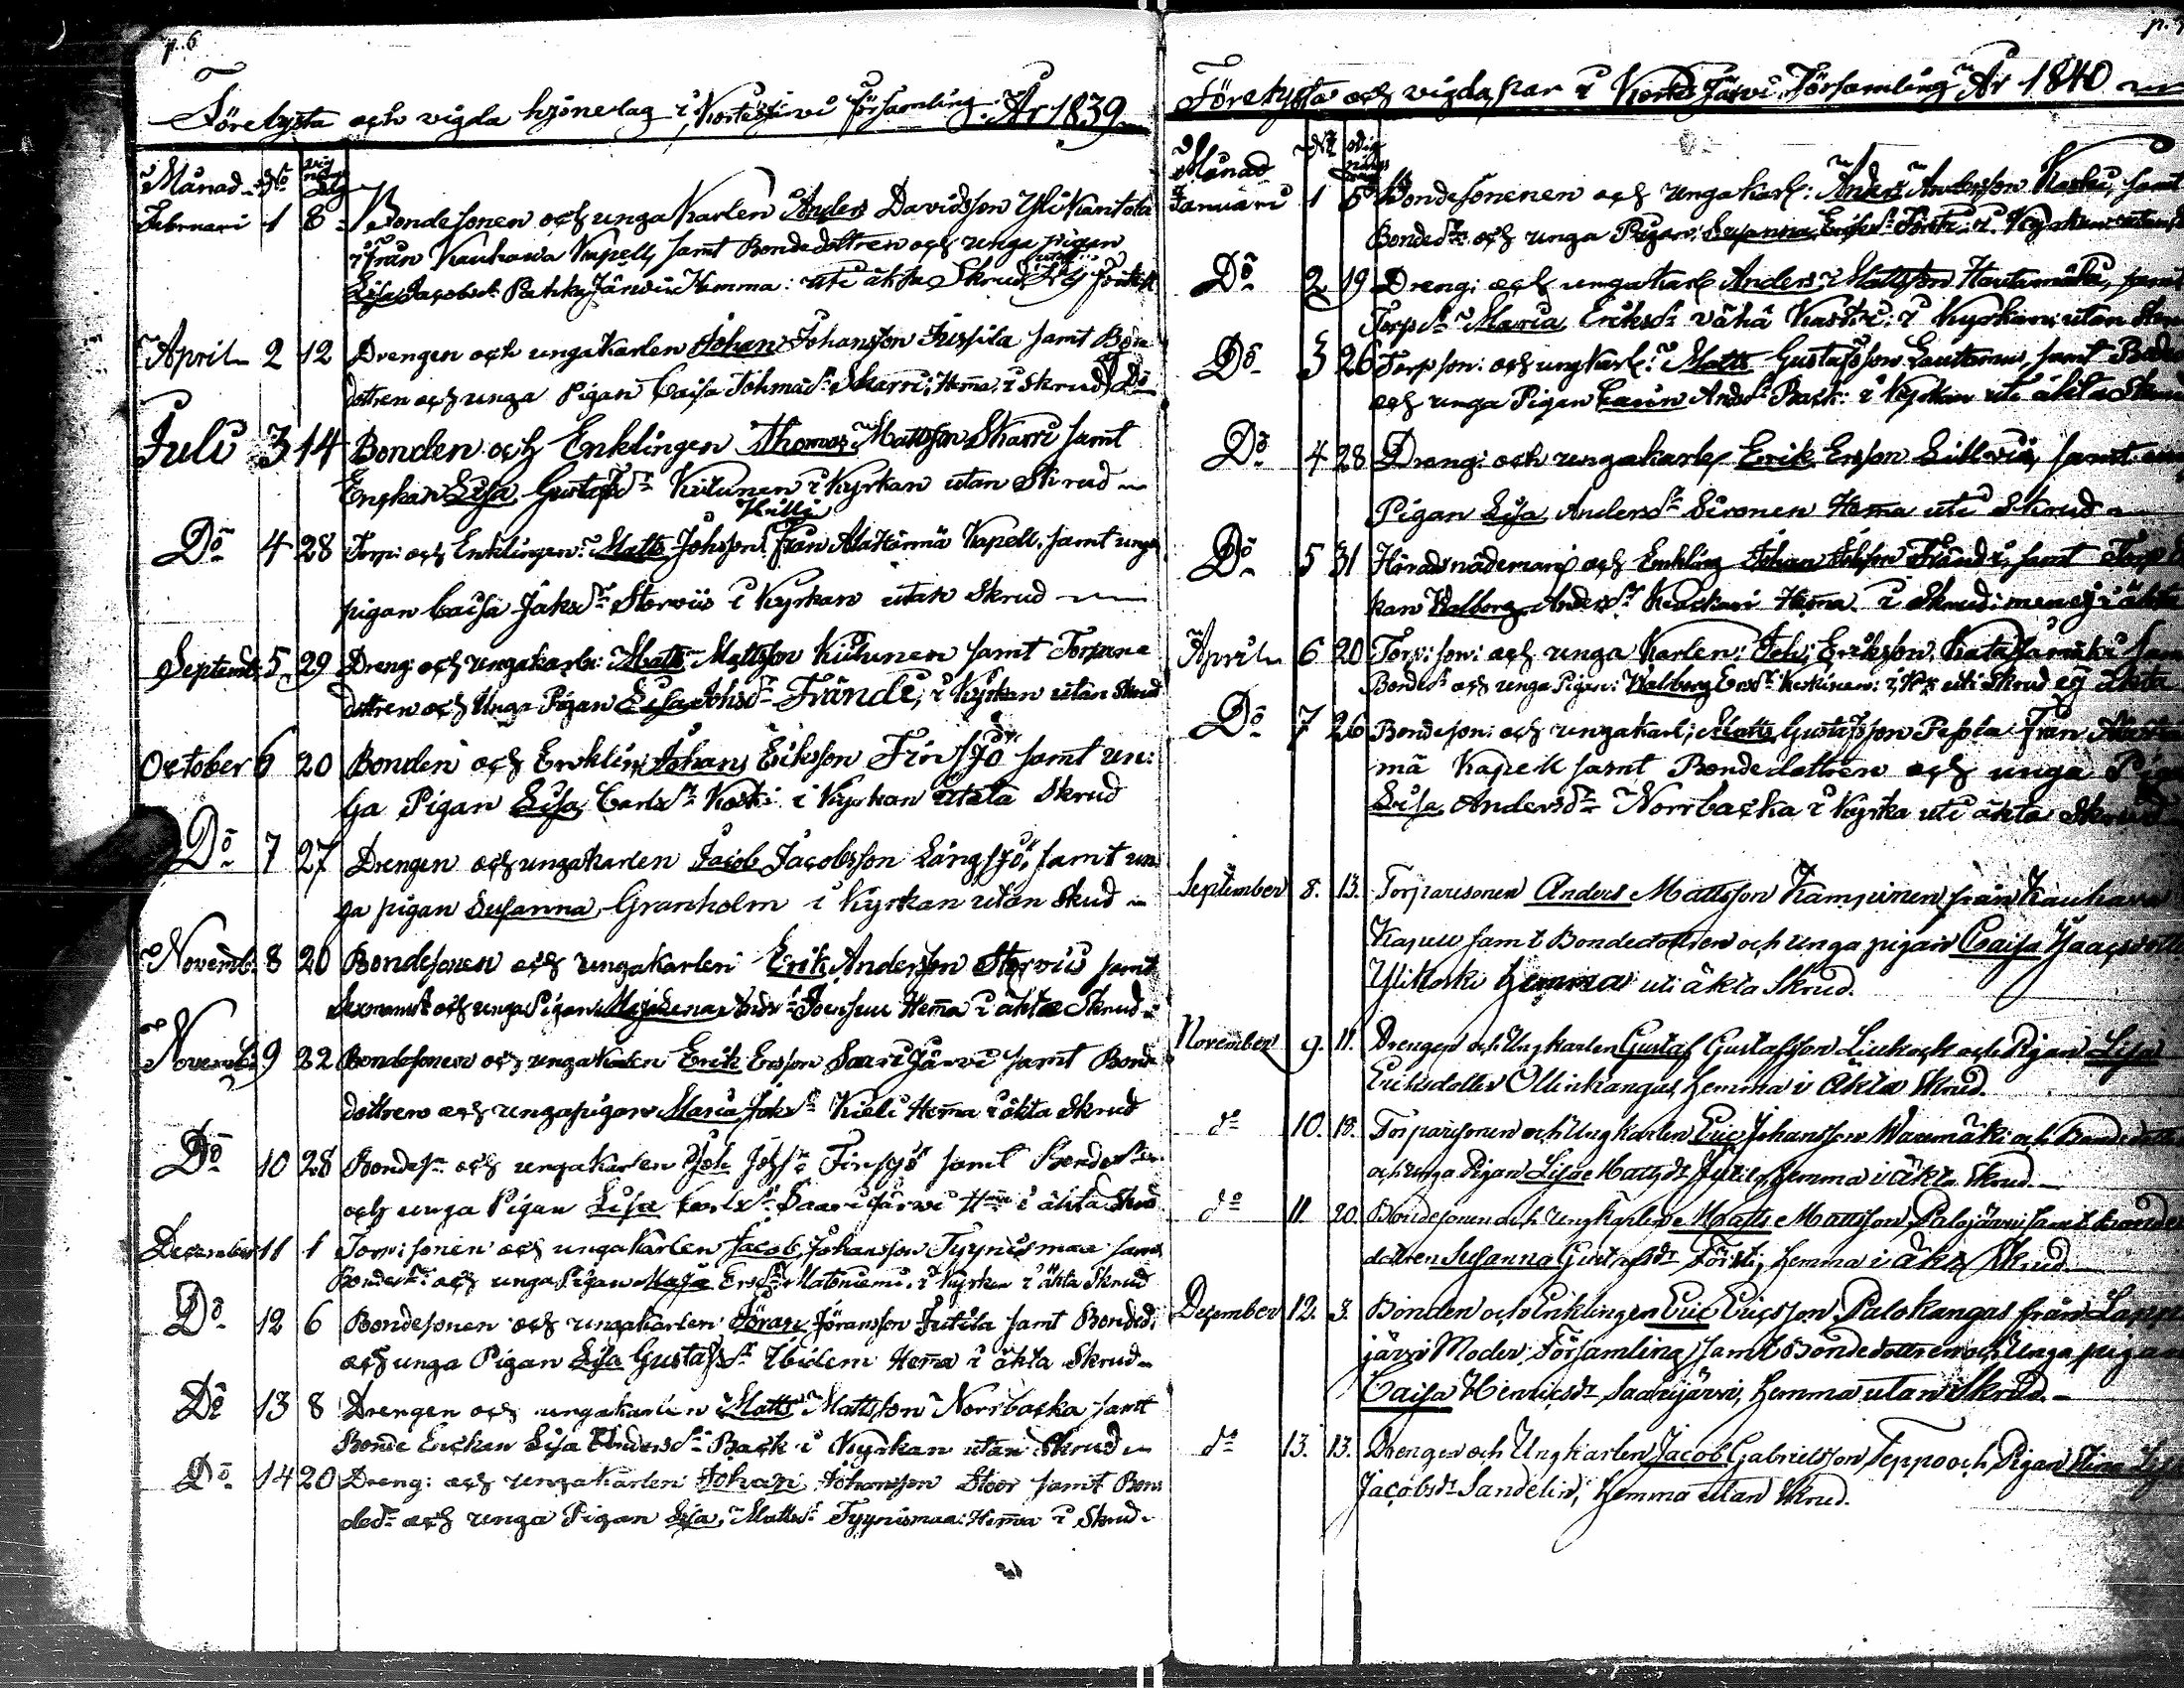 p. 6
Förelysta och vigda hjonelag i Kortesjärvi Församling. År 1839
Månad No vig nings dag
Februari 1 8 Bondesonen och unga Karlen Anders Davidsson Yli Kantola
ifrån Kauhawa Kapell, samt Bondedottren och unga pigan
Lisa Jacobsdr Pahka Järvi Hemma: uti äkta Skrud
April 2 12 Drengen och ungakarlen Johan Johansson Jussila samt Bon
dottren och unga Pigan Caisa Skarri; Hema, i Skrud
Juli 3 14 Bonden och Enklingen Thomas Mattsson Skarri samt
Enckan Lisa Gustafsdr Kiitunen i Kyrkan utan Skrud
Killi
Do 4 28 Torp: och Enklingen: Matts Johsson från AlaHärmä Kapell. samt unga
pigan Caisa Jaksdr Storviis i Kyrkan utan Skrud
Septemb: 5 29 Dreng: och ungakarln: Matts Mattsson Kiitunen samt Torpare
dottren och Unga Pigan Lisa Johsdr Frände, i Kyrkan utan Skrud
October 6 20 Bonden och Enkling Johan Eriksson Finsjö samt un:
ga Pigan Lisa Carlsdr Koski i Kyrkan Skrud
Do 7 27 Drengen och ungakarlen Jacob Jacobsson Långsjö, samt un
ga pigan Susanna Granholm i Kyrkan utan Skud
Novemb: 8 20 Bondesonen och ungakarlen Erik Andersson Storviis samt
och unga Pigan Majalena Hema i äkta Skrud
Novemb: 9 22 Bondesonen och ungakarlen Erik Ersson Saarijärvi samt Bonde
dottren och ungapigan Maria Jaksdr Kieli Hema i äkta Skrud
Do 10 28 Bondesn och ungakarlen Joh Johssn Finsjö samt Bondedn
och unga Pigan Lisa Carlsdr Saarijärvi i äkta Skrud
December 11 1 Torp: sonen och ungakarlen Jacob Johansson Tyynismaa samt
Bondedr: och unga Pigan Maja Ersdr Matoniemi, i Kyrkan i äkta Skrud
Do 12 6 Bondesonen och ungakarlen Jöran Jöransson Jutila samt Bonded:
och unga Pigan Lisa Gustafsdr Ibidem Hema i äkta Skrud
Do 13 8 Drengen och ungakarlen Matts Mattsson Norrbacka samt
Bonde Enckan Lisa Andersdr Back i Kyrkan utan Skrud
Do 14 20 Dreng: och ungakarlen Johan Johansson Stoor samt Bon:
dedr och unga Pigan Lisa Mattsdr Tyynismaa: Hema i Skrud
p.
Förelysta och vigda par i Kortes Järvi Församling År 1840
Månad No vig nings dag
Januari 1 5 Bondesonenen och ungakarl: Anders Andersson Koski, samt
Bondedr och unga Pigan: Susanna Ericsdr i Kyrkan utan
Do 2 19 Dreng: och ungakarl Anders Mattsson Hautamäki, samt
Torpdr Maria Eriksdr vähä Kaski: i Kyrkan: utan
Do 3 26 Torpson: och ungkarl: Matts Gustafsson Lauttamus, samt
och unga Pigan Carin Andsdr Back: i Kyrkan uti äkta Skrud
Do 4 28 Dreng: och ungakarl Erik Ersson Lillviis, samt
Pigan Lisa Andersdr Sironen Hema uti Skrud
Do 5 31 Häradsnädeman och Enkling Johan Frände, samt Torp
kan Walborg Andersdr Hema i Skrud: men ej i äkta
April 6 20 Torp: son: och unga Karlen: Joh: Eriksson, Katajamäki samt
Bondedr och unga Pigan: Walborg Ersdr Keskinen: i uti Skrud ej äkta
Do 7 26 Bondeson: och ungakarl; Matts Gustafsson från
mä Kapell samt Bondedottren och unga Pigan
Lisa Andersdr Norrbacka i Kyrka uti äkta Skrud
September 8. 13. Torparesonen Anders Mattsson Kamppinen från Kauhava
Kapell samt Bondedottren och unga pigan Caisa
Ylikoski hemma uti äkta Skrud.
November 9. 11. Drengen och Ungkarlen Gustaf Gustafsson och Pigan Lisa
Eriksdotter Ollinkangas, hemma i äkta Skrud.
do 10. 18. Torparesonen och Ungkarlen Eric Johansson Warsmäki och Bondedott
och unga Pigan Lisa Mattsdr Jutila, hemma i äkta Skrud.
do 11 20. Bondesonen och Ungkarlen Matts Mattsson, Palojärvi samt Bonde
dottren Susanna Gustafsdr Försti, hemma i äkta Skrud
December 12. 3. Bonden och Enklingen Eric Ericsson Palokangas från Lappo
järvi Moder Församling samt Bondedottren och Unga pigan
Caisa Henricsdr Saarijärvi, hemma utan Skrud.
do 13. 13. Drengen och Ungkarlen Jacob Gabrielsson Seppo och Pigan Stina
Jacobsdr Sandelin, hemma utan Skrud.